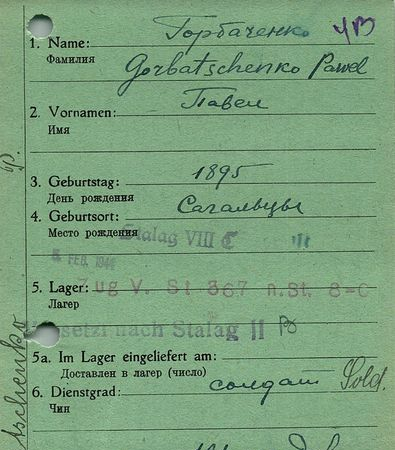 Горбаченко УВ
1. Name:
Фамилия
Gorbatschenko Pawel
Павел
2. Vornamen:
Имя
1895
3. Geburtstag:
День рождения
Сагальвцы
4. Geburtsort:
Место рождения
Stalag VIII C
FEB. 1944
5. Lager: ug V. St 367 n. St. 8=C
Лагер
setzt nach Stalag II B
5a. Im Lager eingeliefert am:
Доставлен в лагер (число)
солдат Sold.
6. Dienstgrad:
Чин
tschenko